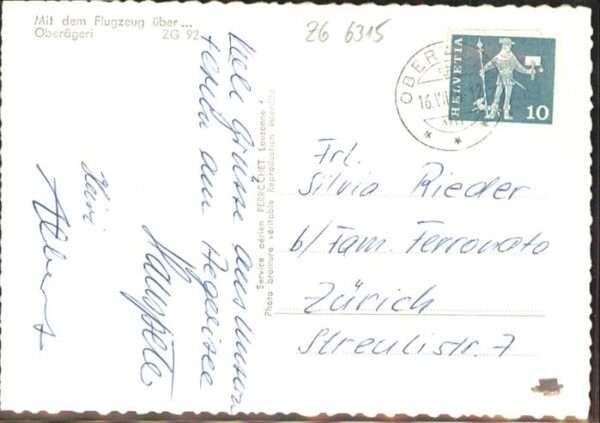 Mit dem Flugzeug über ...
Oberägeri ZG 92
ZG 6315
OBER
16.VII
HELVETIA
10
Viele Grüsse aus unsern
Ferien am Aegerisee
Hanspeter
Heini
Albert
Service aérien PERROCHET Lausanne
Photo bromure véritable Reproduction interdite
Frl.
Silvia Rieder
b/ Fam. Ferronato
Zürich
Streulistr. 7